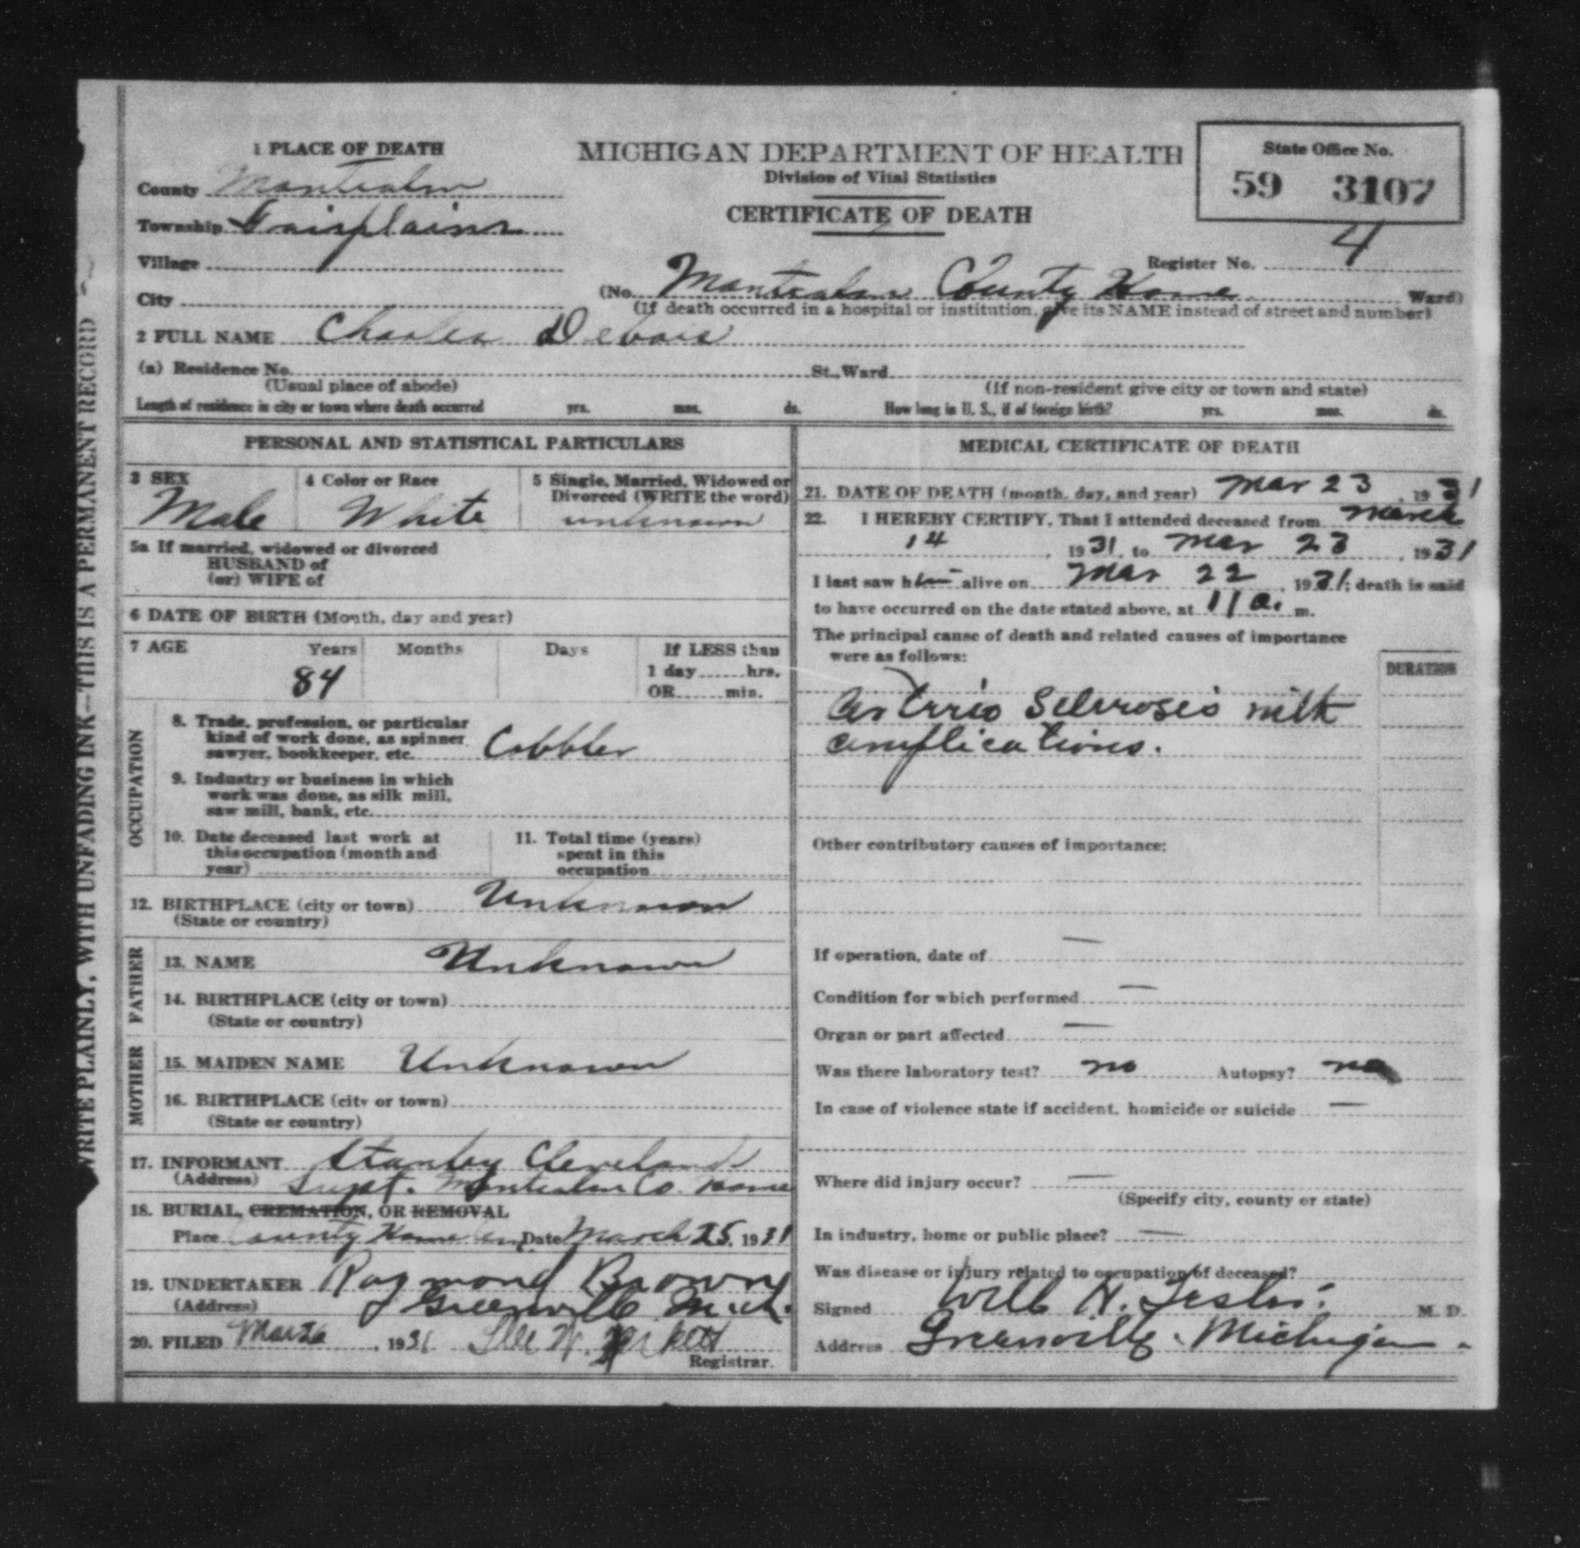 1 PLACE OF DEATH
MICHIGAN DEPARTMENT OF HEALTH
Division of Vital Statistics
CERTIFICATE OF DEATH
State Office No.
59 3107
County Montcalm
Township Fairplains
Village
City
Register No. 4
(No. Montcalm County Home Ward)
(If death occurred in a hospital or institution, give its NAME instead of street and number)
2 FULL NAME Charles
(a) Residence No. St., Ward
(Usual place of abode) (If non-resident give city or town and state)
Length of residence in city or town where death occurred yrs. mos. ds. How long in U. S., if of foreign birth? yrs. mos. ds.
WRITE PLAINLY, WITH UNFADING INK—THIS IS A PERMANENT RECORD
PERSONAL AND STATISTICAL PARTICULARS
3 SEX 4 Color or Race 5 Single, Married, Widowed or
Divorced (WRITE the word)
Male White unknown
5a If married, widowed or divorced
HUSBAND of
(or) WIFE of
6 DATE OF BIRTH (Month, day and year)
7 AGE Years Months Days If LESS than
1 day hrs.
84
OR min.
OCCUPATION
8. Trade, profession, or particular
kind of work done, as spinner,
sawyer, bookkeeper, etc. Cobbler
9. Industry or business in which
work was done, as silk mill,
saw mill, bank, etc.
10. Date deceased last work at
this occupation (month and
year)
11. Total time (years)
spent in this
occupation
12. BIRTHPLACE (city or town) Unknown
(State or country)
FATHER
13. NAME Unknown
14. BIRTHPLACE (city or town)
(State or country)
MOTHER
15. MAIDEN NAME Unknown
16. BIRTHPLACE (city or town)
(State or country)
17. INFORMANT Stanley Cleveland
(Address) Supt. Montcalm Co. Home
18. BURIAL, CREMATION, OR REMOVAL
Place County Home Cem Date March 25, 1931
19. UNDERTAKER Raymond Brown
(Address) Greenville Mich.
20. FILED Mar 26, 1931
Registrar.
MEDICAL CERTIFICATE OF DEATH
21. DATE OF DEATH (month, day, and year) Mar 23, 1931
22. I HEREBY CERTIFY, That I attended deceased from March
14, 1931, to Mar 23, 1931
I last saw him alive on Mar 22, 1931; death is said
to have occurred on the date stated above, at 11 a. m.
The principal cause of death and related causes of importance
were as follows:
DURATION
Arterio Sclerosis with
complications.
Other contributory causes of importance:
If operation, date of —
Condition for which performed —
Organ or part affected —
Was there laboratory test? no Autopsy? no
In case of violence state if accident, homicide or suicide —
Where did injury occur? —
(Specify city, county or state)
In industry, home or public place? —
Was disease or injury related to occupation of deceased?
Signed Will H. M. D.
Address Greenville, Michigan.